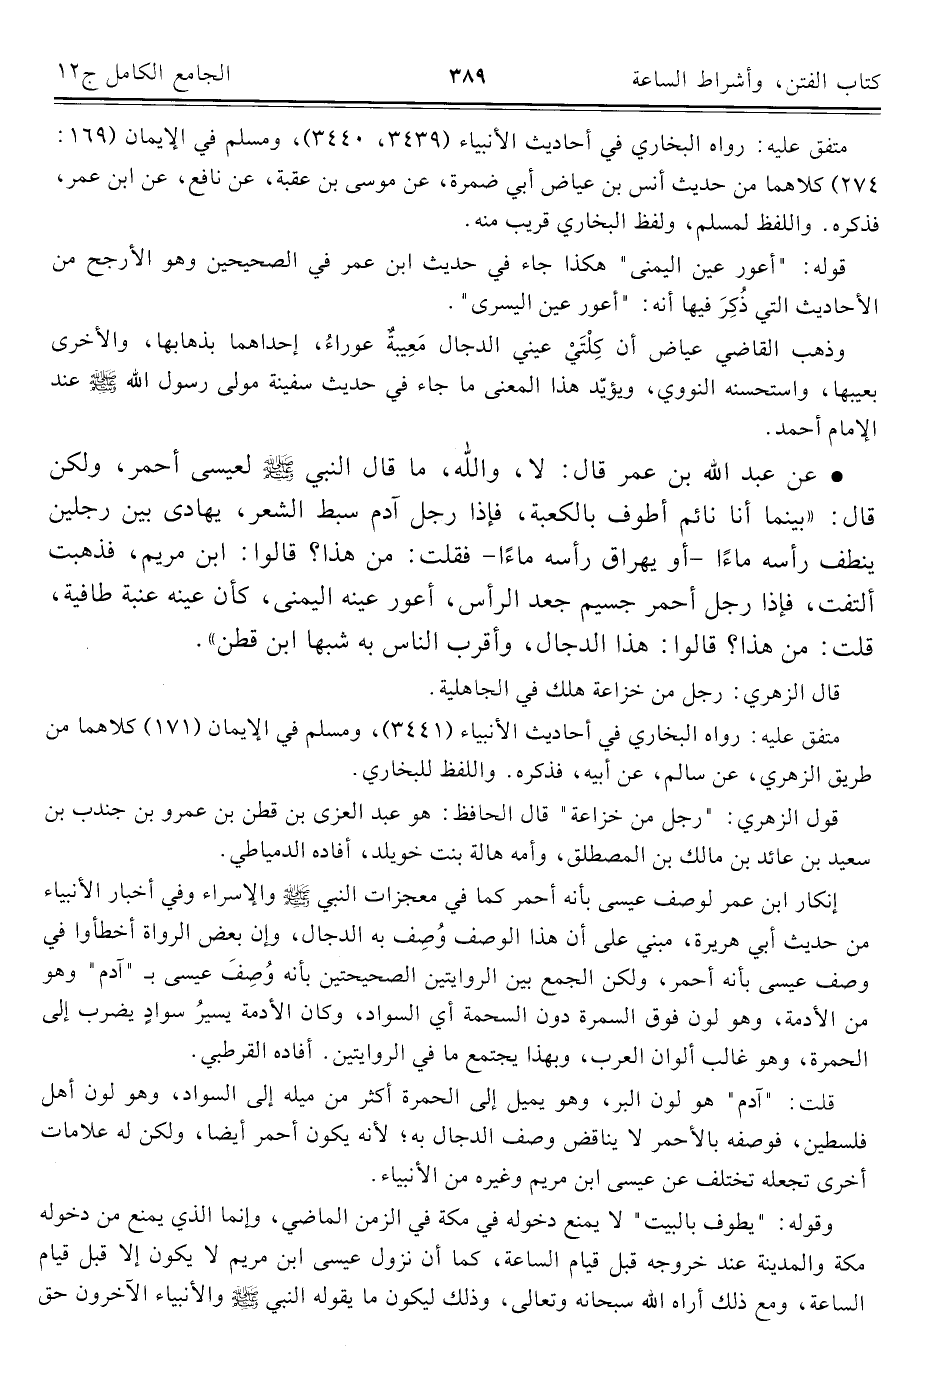 كتاب الفتن، وأشراط الساعة ٣٨٩ الجامع الكامل ج١٢
متفق عليه: رواه البخاري في أحاديث الأنبياء (٣٤٣٩، ٣٤٤٠)، ومسلم في الإيمان (١٦٩:
٢٧٤) كلاهما من حديث أنس بن عياض أبي ضمرة، عن موسى بن عقبة، عن نافع، عن ابن عمر،
فذكره. واللفظ لمسلم، ولفظ البخاري قريب منه.
قوله: "أعور عين اليمنى" هكذا جاء في حديث ابن عمر في الصحيحين وهو الأرجح من
الأحاديث التي ذُكِرَ فيها أنه: "أعور عين اليسرى".
وذهب القاضي عياض أن كِلْتَيْ عيني الدجال مَعِيبةٌ عوراءُ، إحداهما بذهابها، والأخرى
بعيبها، واستحسنه النووي، ويؤيّد هذا المعنى ما جاء في حديث سفينة مولى رسول الله ﷺ عند
الإمام أحمد.
• عن عبد الله بن عمر قال: لا، والله، ما قال النبي ﷺ لعيسى أحمر، ولكن
قال: «بينما أنا نائم أطوف بالكعبة، فإذا رجل آدم سبط الشعر، يهادى بين رجلين
ينطف رأسه ماءًا -أو يهراق رأسه ماءًا- فقلت: من هذا؟ قالوا: ابن مريم، فذهبت
ألتفت، فإذا رجل أحمر جسيم جعد الرأس، أعور عينه اليمنى، كأن عينه عنبة طافية،
قلت: من هذا؟ قالوا: هذا الدجال، وأقرب الناس به شبها ابن قطن».
قال الزهري: رجل من خزاعة هلك في الجاهلية.
متفق عليه: رواه البخاري في أحاديث الأنبياء (٣٤٤١)، ومسلم في الإيمان (١٧١) كلاهما من
طريق الزهري، عن سالم، عن أبيه، فذكره. واللفظ للبخاري.
قول الزهري: "رجل من خزاعة" قال الحافظ: هو عبد العزى بن قطن بن عمرو بن جندب بن
سعيد بن عائد بن مالك بن المصطلق، وأمه هالة بنت خويلد، أفاده الدمياطي.
إنكار ابن عمر لوصف عيسى بأنه أحمر كما في معجزات النبي ﷺ والإسراء وفي أخبار الأنبياء
من حديث أبي هريرة، مبني على أن هذا الوصف وُصِف به الدجال، وإن بعض الرواة أخطأوا في
وصف عيسى بأنه أحمر، ولكن الجمع بين الروايتين الصحيحتين بأنه وُصِفَ عيسى بـ "آدم" وهو
من الأدمة، وهو لون فوق السمرة دون السحمة أي السواد، وكان الأدمة يسيرُ سوادٍ يضرب إلى
الحمرة، وهو غالب ألوان العرب، وبهذا يجتمع ما في الروايتين. أفاده القرطبي.
قلت: "آدم" هو لون البر، وهو يميل إلى الحمرة أكثر من ميله إلى السواد، وهو لون أهل
فلسطين، فوصفه بالأحمر لا يناقض وصف الدجال به؛ لأنه يكون أحمر أيضا، ولكن له علامات
أخرى تجعله تختلف عن عيسى ابن مريم وغيره من الأنبياء.
وقوله: "يطوف بالبيت" لا يمنع دخوله في مكة في الزمن الماضي، وإنما الذي يمنع من دخوله
مكة والمدينة عند خروجه قبل قيام الساعة، كما أن نزول عيسى ابن مريم لا يكون إلا قبل قيام
الساعة، ومع ذلك أراه الله سبحانه وتعالى، وذلك ليكون ما يقوله النبي ﷺ والأنبياء الآخرون حق